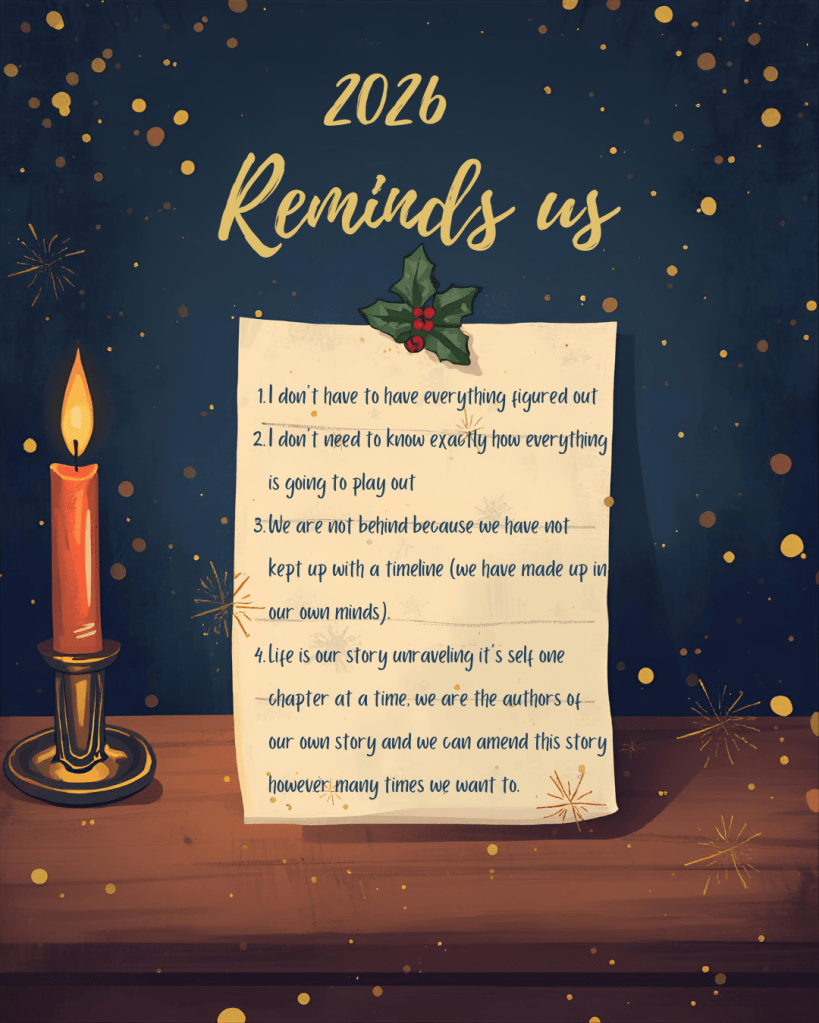 2026
Reminds us
1. I don't have to have everything figured out
2. I don't need to know exactly how everything
is going to play out
3. We are not behind because we have not
kept up with a timeline (we have made up in
our own minds).
4. Life is our story unraveling it's self one
chapter at a time, we are the authors of
our own story and we can amend this story
however many times we want to.